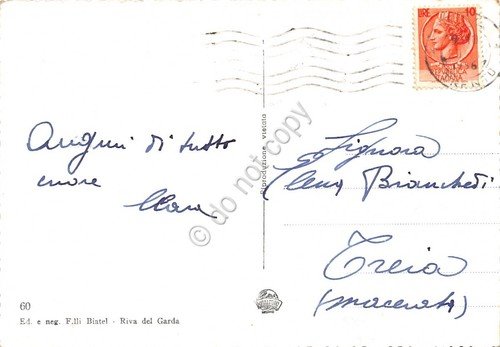 LIRE 10
Auguri di tutto
cuore
Clara
Signora
Elena Bianchedi
Treia
(Macerata)
Riproduzione vietata
© do not copy
60
Ed. e neg. F.lli Biatel - Riva del Garda